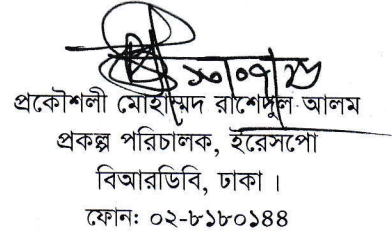 প্রকৌশলী মোহাম্মদ রাশেদুল আলম
প্রকল্প পরিচালক, ইরেসপো
বিআরডিবি, ঢাকা ।
ফোন: ০২-৮১৮০১৪৪